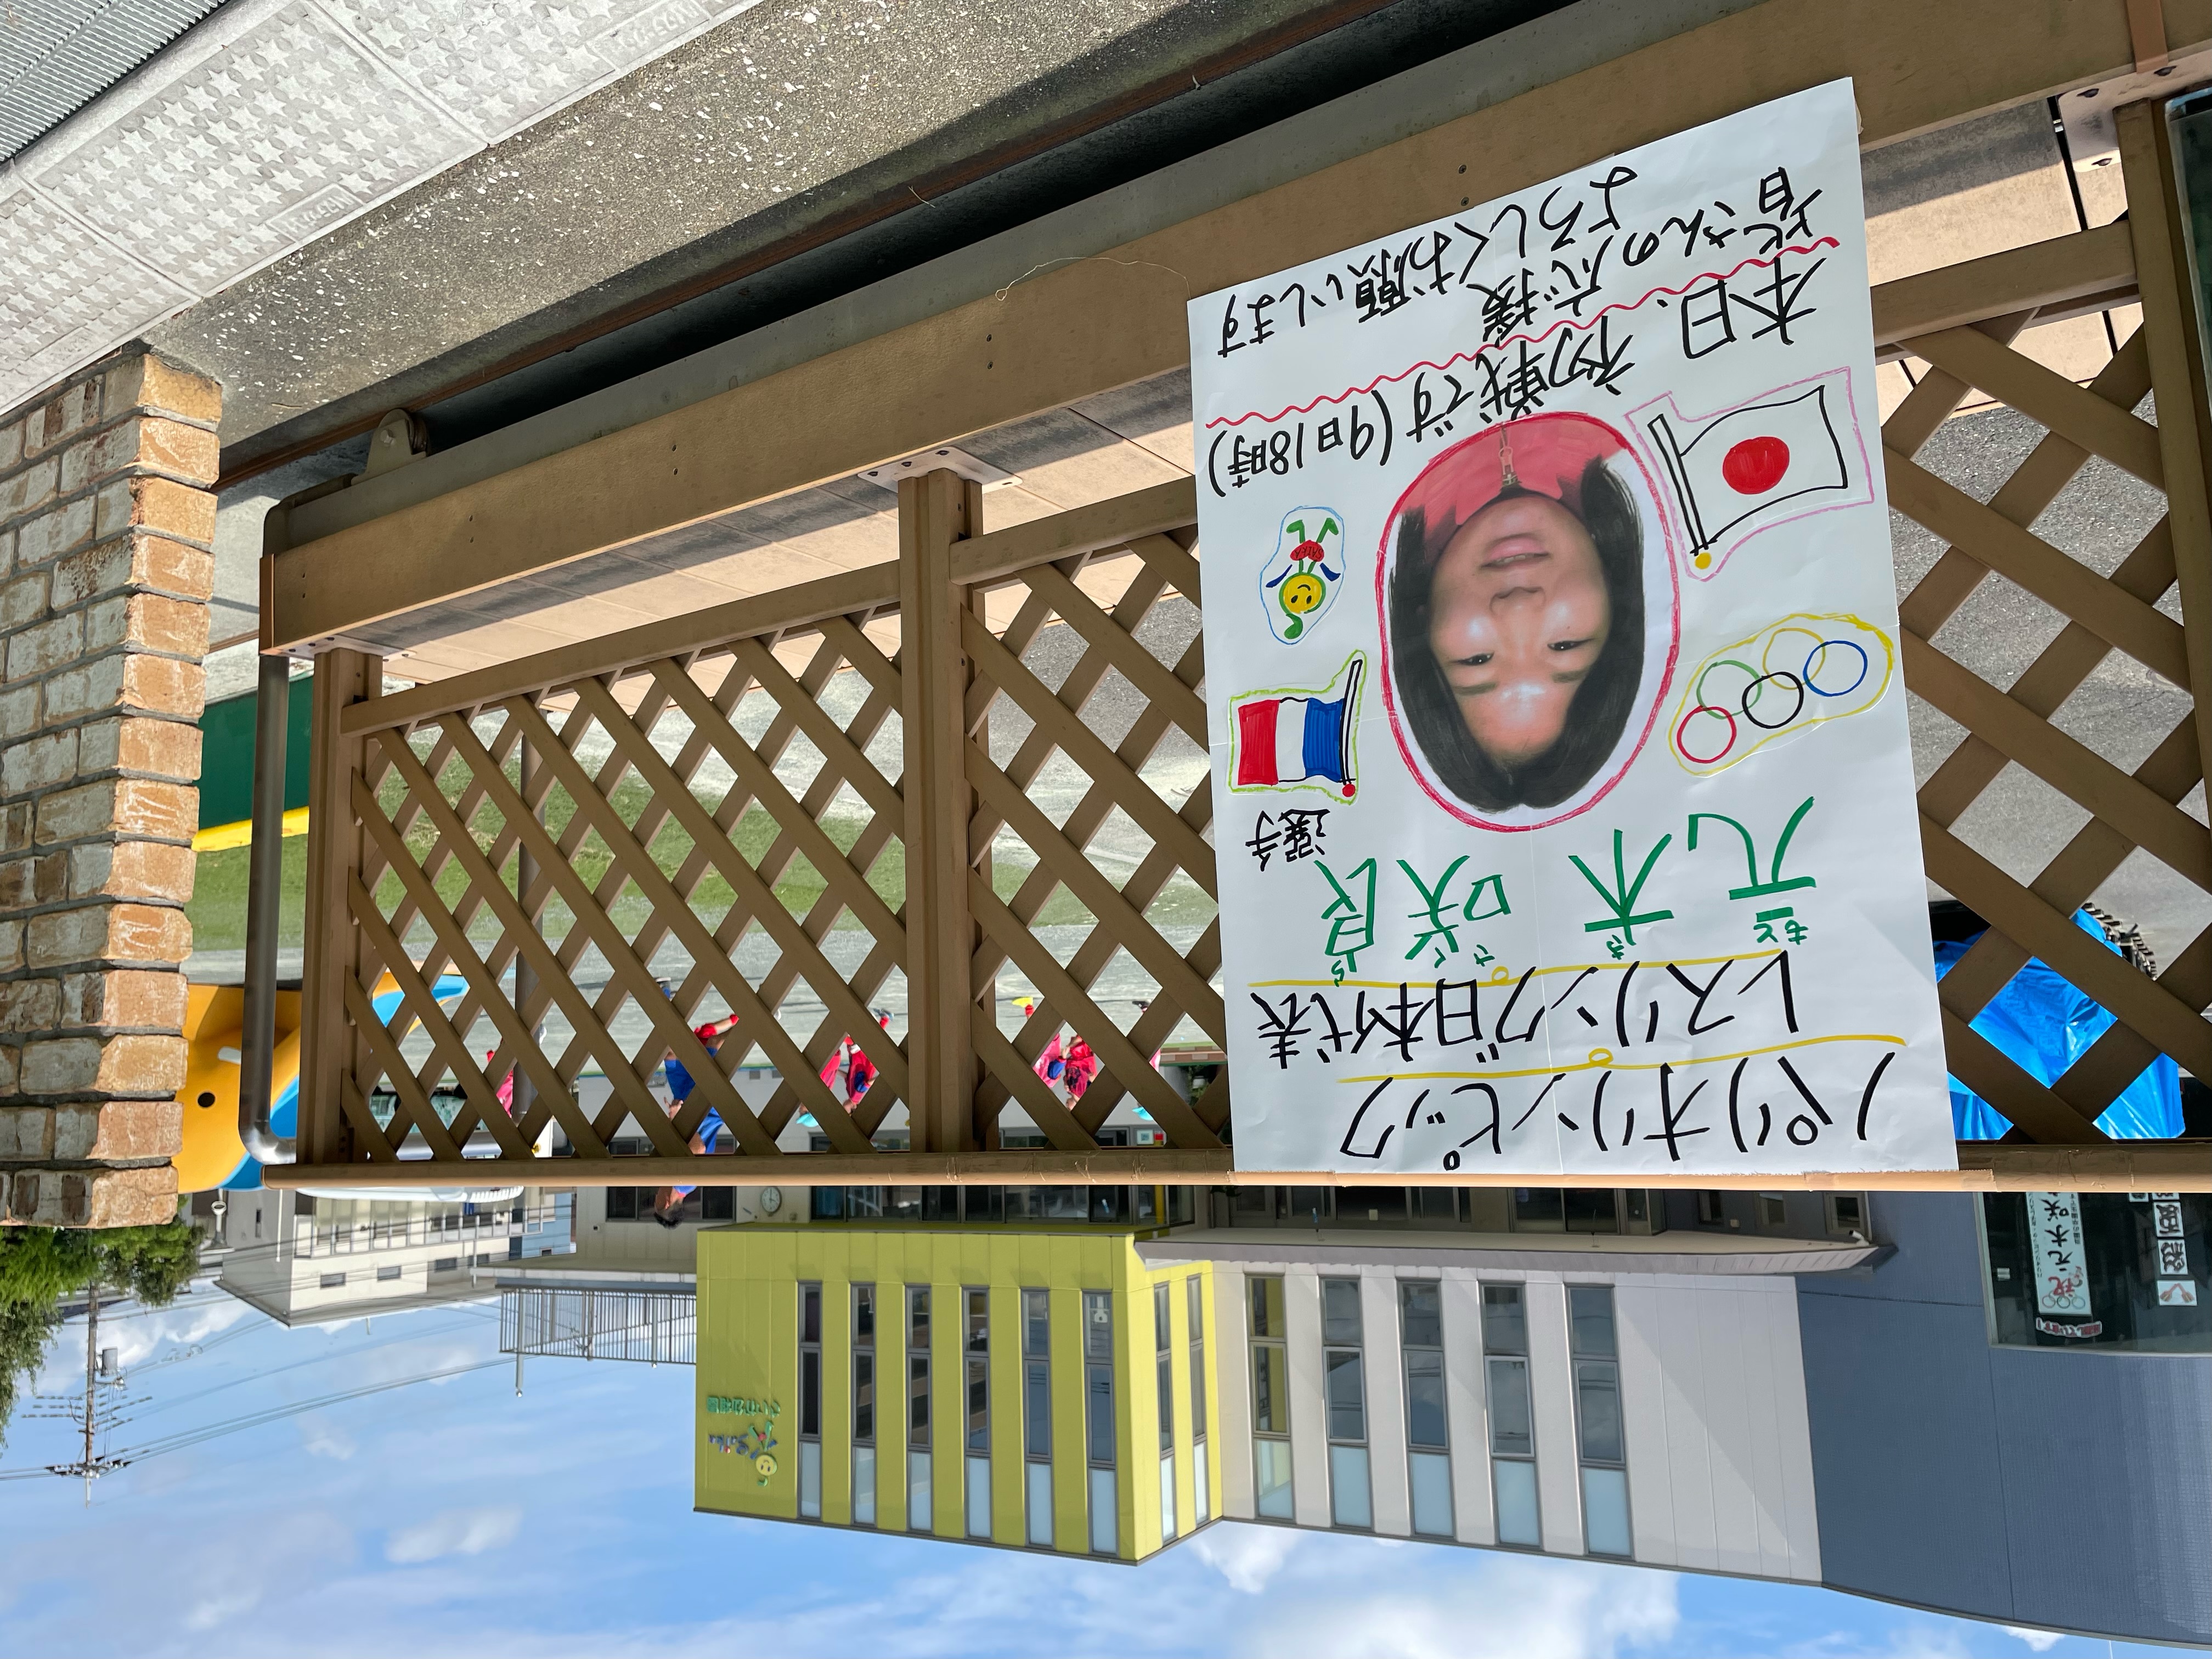 パリオリンピック
レスリング日本代表
もと き さくら
元木 咲良 選手
SAIKA
本日、初戦です(9日18時)
皆さんの応援
よろしくお願いします
祝 元木咲